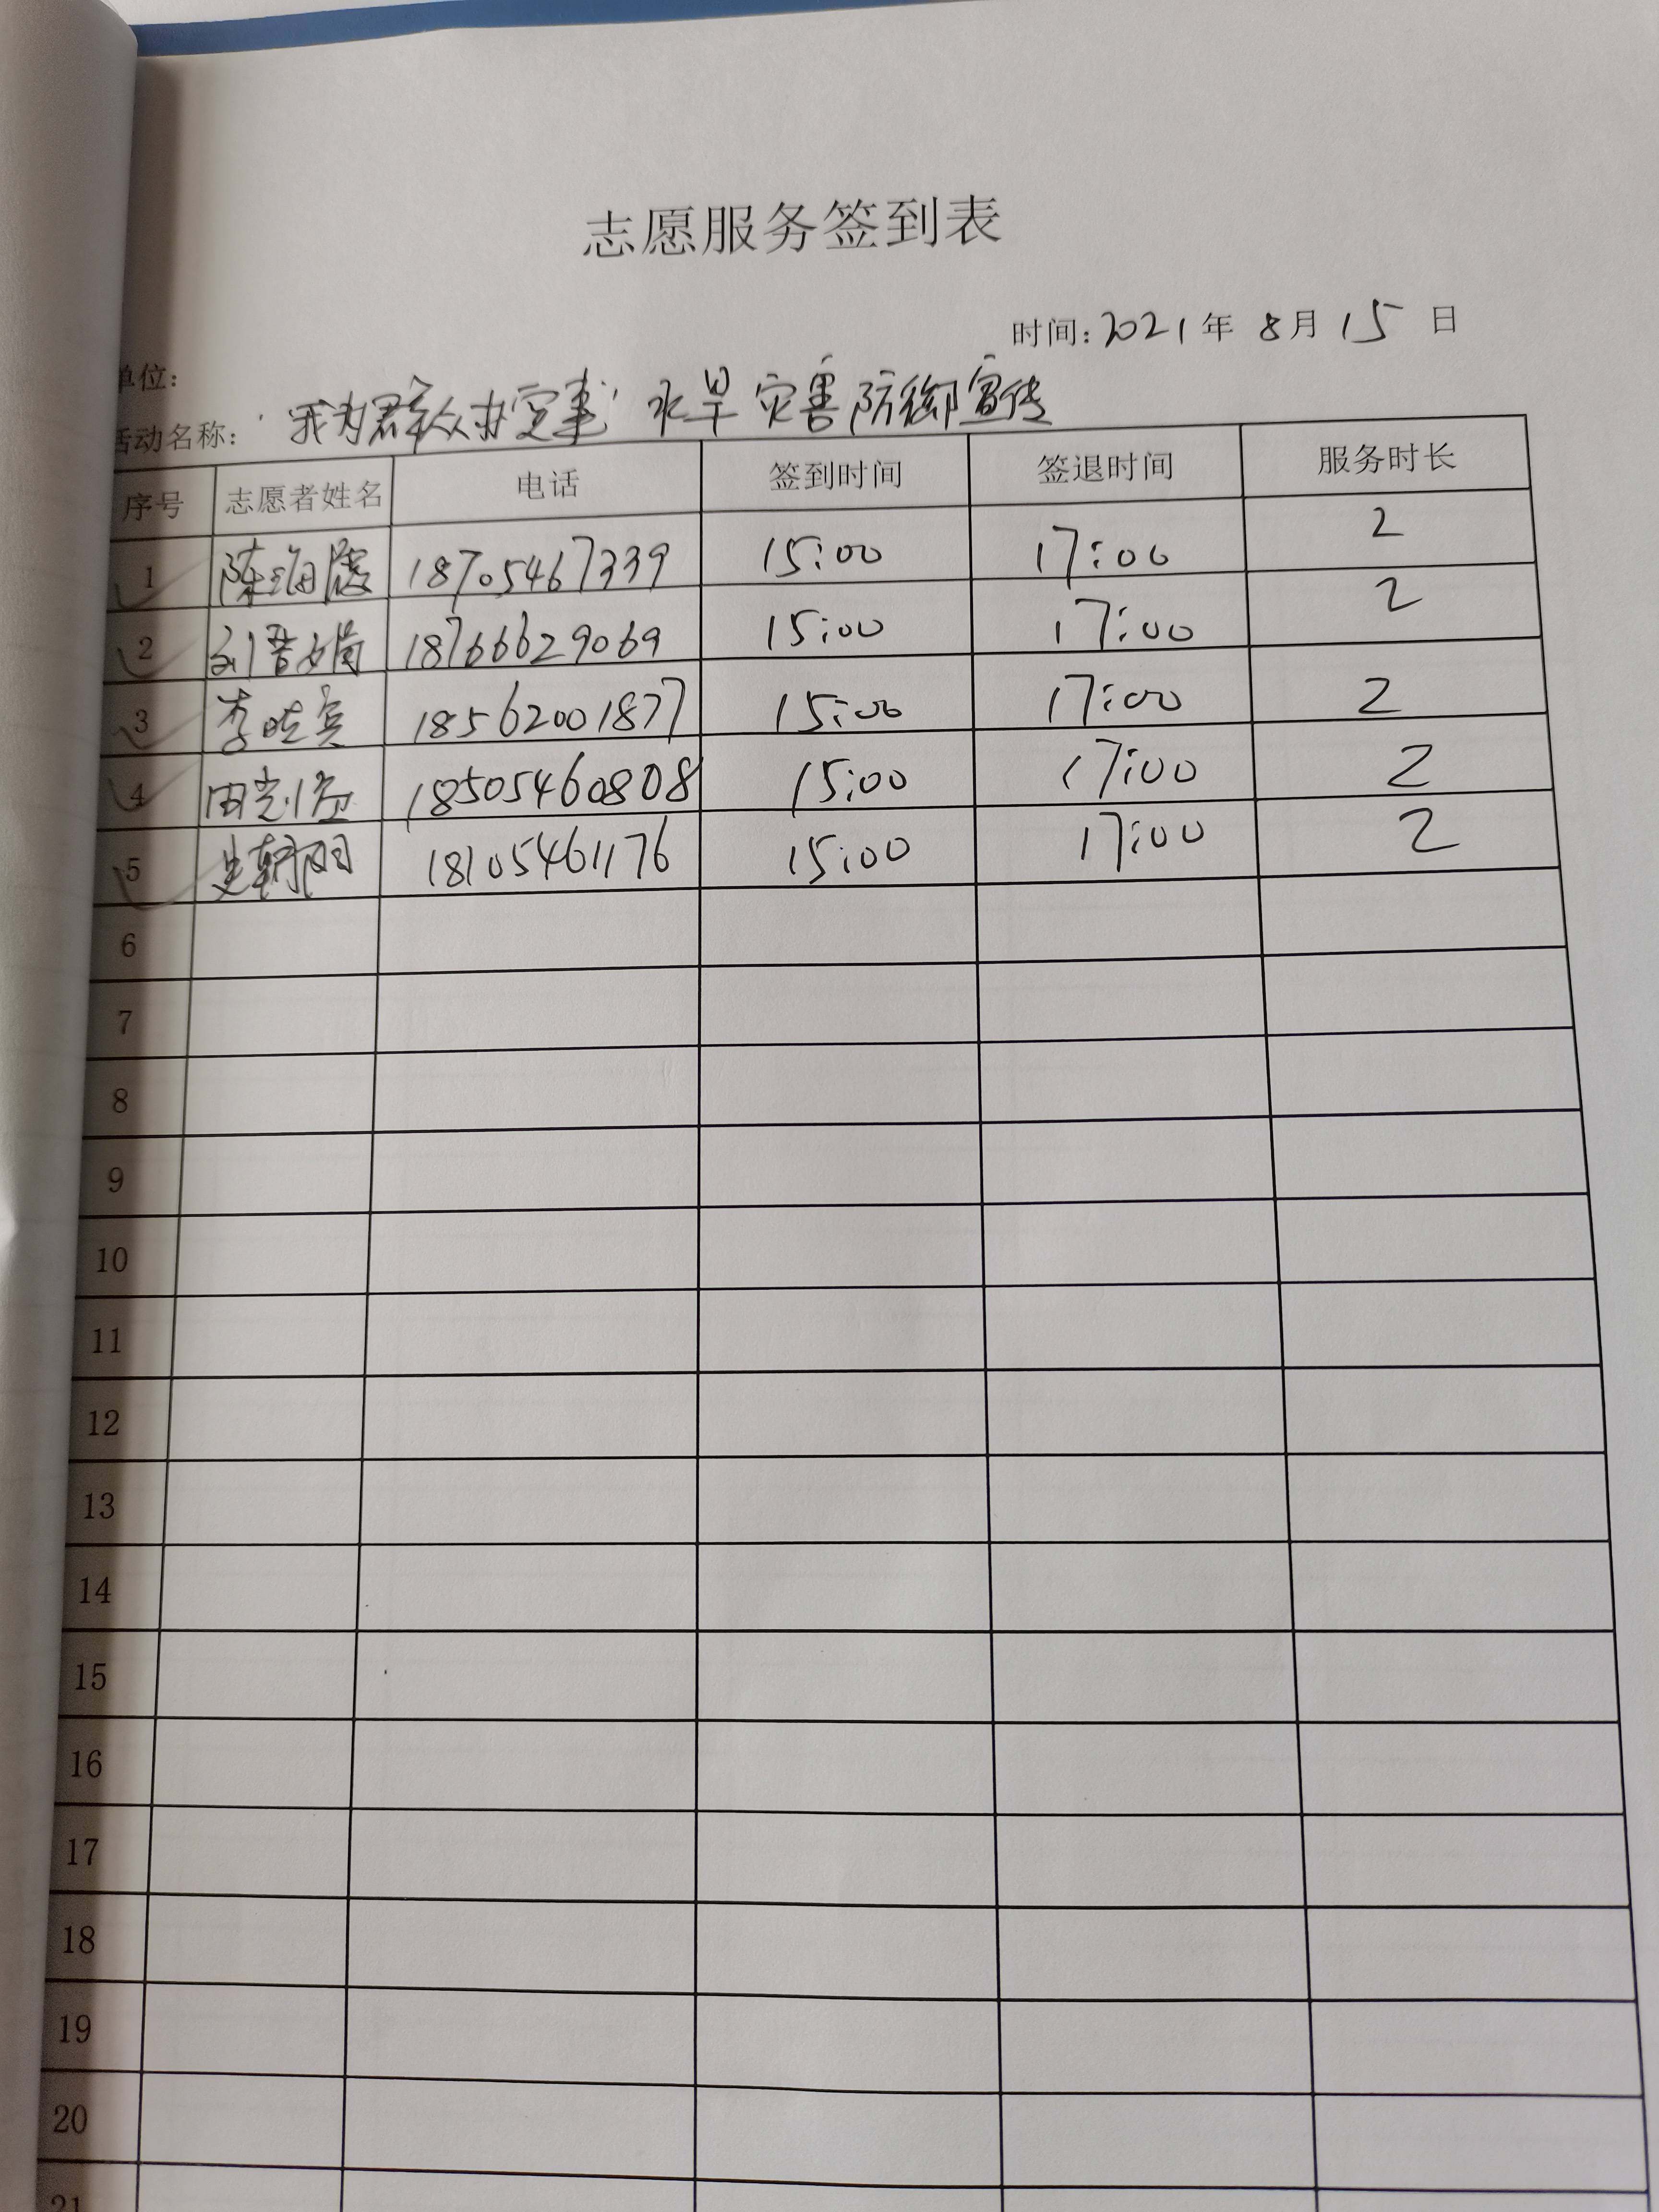 志愿服务签到表
时间:2021年 8月 15 日
单位:
活动名称:"我为群众办实事"水旱灾害防御宣传
序号 志愿者姓名 电话 签到时间 签退时间 服务时长
1 陈海霞 18705467339 15:00 17:00 2
2 18766629069 15:00 17:00 2
3 李晓宾 18562001877 15:00 17:00 2
4 18505460808 15:00 17:00 2
5 史朝阳 18105461176 15:00 17:00 2
6
7
8
9
10
11
12
13
14
15
16
17
18
19
20
21